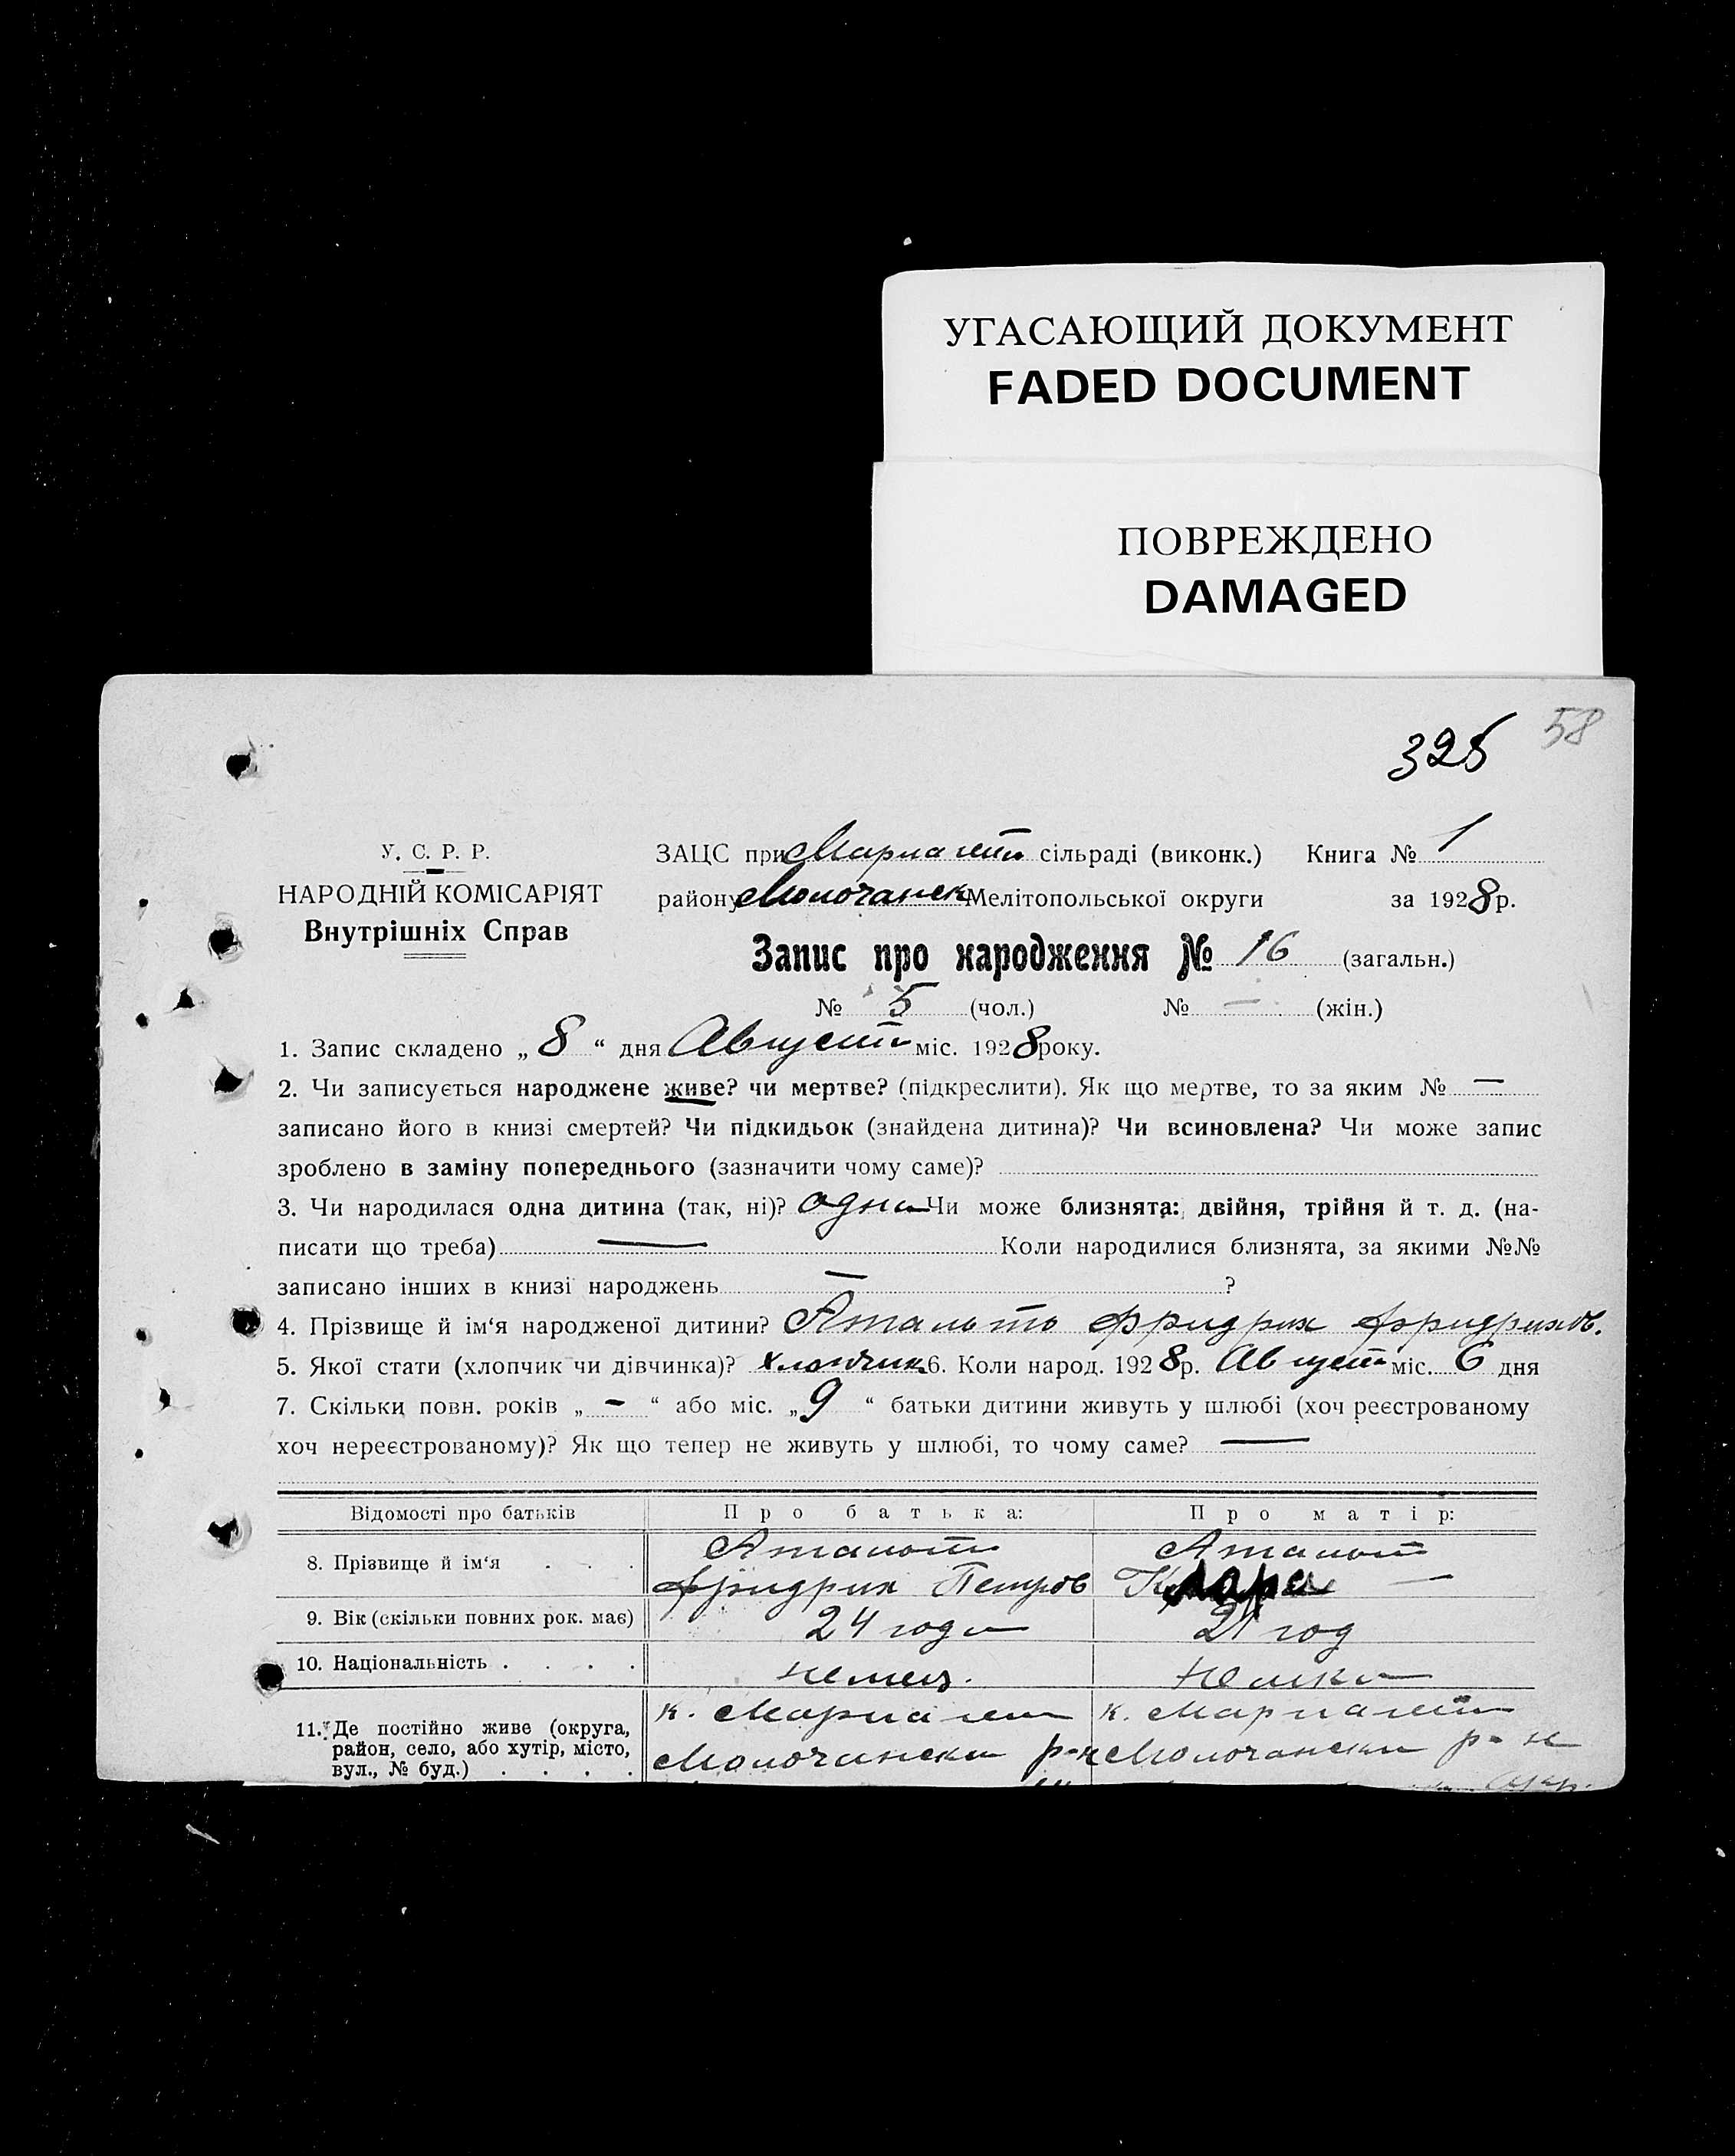 УГАСАЮЩИЙ ДОКУМЕНТ
FADED DOCUMENT
ПОВРЕЖДЕНО
DAMAGED
325 58
У. С. Р. Р.
НАРОДНІЙ КОМІСАРІЯТ
Внутрішніх Справ
ЗАЦС при сільраді (виконк.) Книга № 1
району Молочанск Мелітопольської округи за 1928 р.
Запис про народження № 16 (загальн.)
№ 5 (чол.) № — (жін.)
1. Запис складено „ 8 “ дня Август міс. 1928 року.
2. Чи записується народжене живе? чи мертве? (підкреслити). Як що мертве, то за яким № —
записано його в книзі смертей? Чи підкидьок (знайдена дитина)? Чи всиновлена? Чи може запис
зроблено в заміну попереднього (зазначити чому саме)?
3. Чи народилася одна дитина (так, ні)? одна Чи може близнята: двійня, трійня й т. д. (на-
писати що треба) — Коли народилися близнята, за якими №№
записано інших в книзі народжень — ?
4. Прізвище й ім‘я народженої дитини? Фридрих Фридрихов.
5. Якої стати (хлопчик чи дівчинка)? хлопчик 6. Коли народ. 1928 р. Август міс. 6 дня
7. Скільки повн. років „ - “ або міс. „ 9 “ батьки дитини живуть у шлюбі (хоч реєстрованому
хоч нереєстрованому)? Як що тепер не живуть у шлюбі, то чому саме? —
Відомості про батьків Про батька: Про матір:
8. Прізвище й ім‘я . . .
Фридрих Петров Клара —
9. Вік (скільки повних рок. має) 24 года 21 год
10. Національність . . . . Немец. Немка
11. Де постійно живе (округа,
район, село, або хутір, місто,
вул., № буд.) . . . .
к. к.
Молочански р-н Молочански р-н